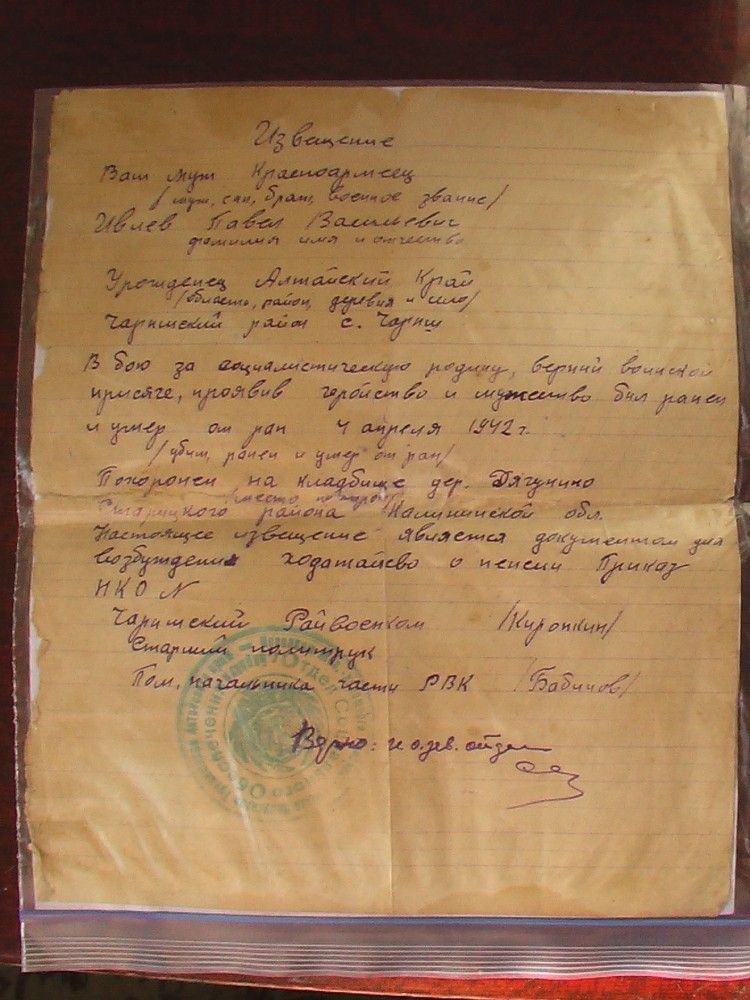 Извещение
Ваш муж Красноармеец
/муж, сын, брат, военное звание/
Ивлев Павел Васильевич
фамилия имя и отчество
Уроженец Алтайский Край
/область, район, деревня и село/
Чаришский район с. Чариш
В бою за социалистическую родину, верний воинской
присяге, проявив геройство и мужество бил ранен
и умер от ран 4 апреля 1942 г.
/убит, ранен и умер от ран/
Похоронен на кладбище дер. Дягунино
/место похорон/
Старицкого района Калининской обл.
Настоящее извещение является документом для
возбуждения ходатайсво о пенсии Приказ
НКО N
Чаришский Райвоенком /Киропкин/
Старший политрук
Пом. начальника части РВК /Бабичов/
Верно:
Отдел